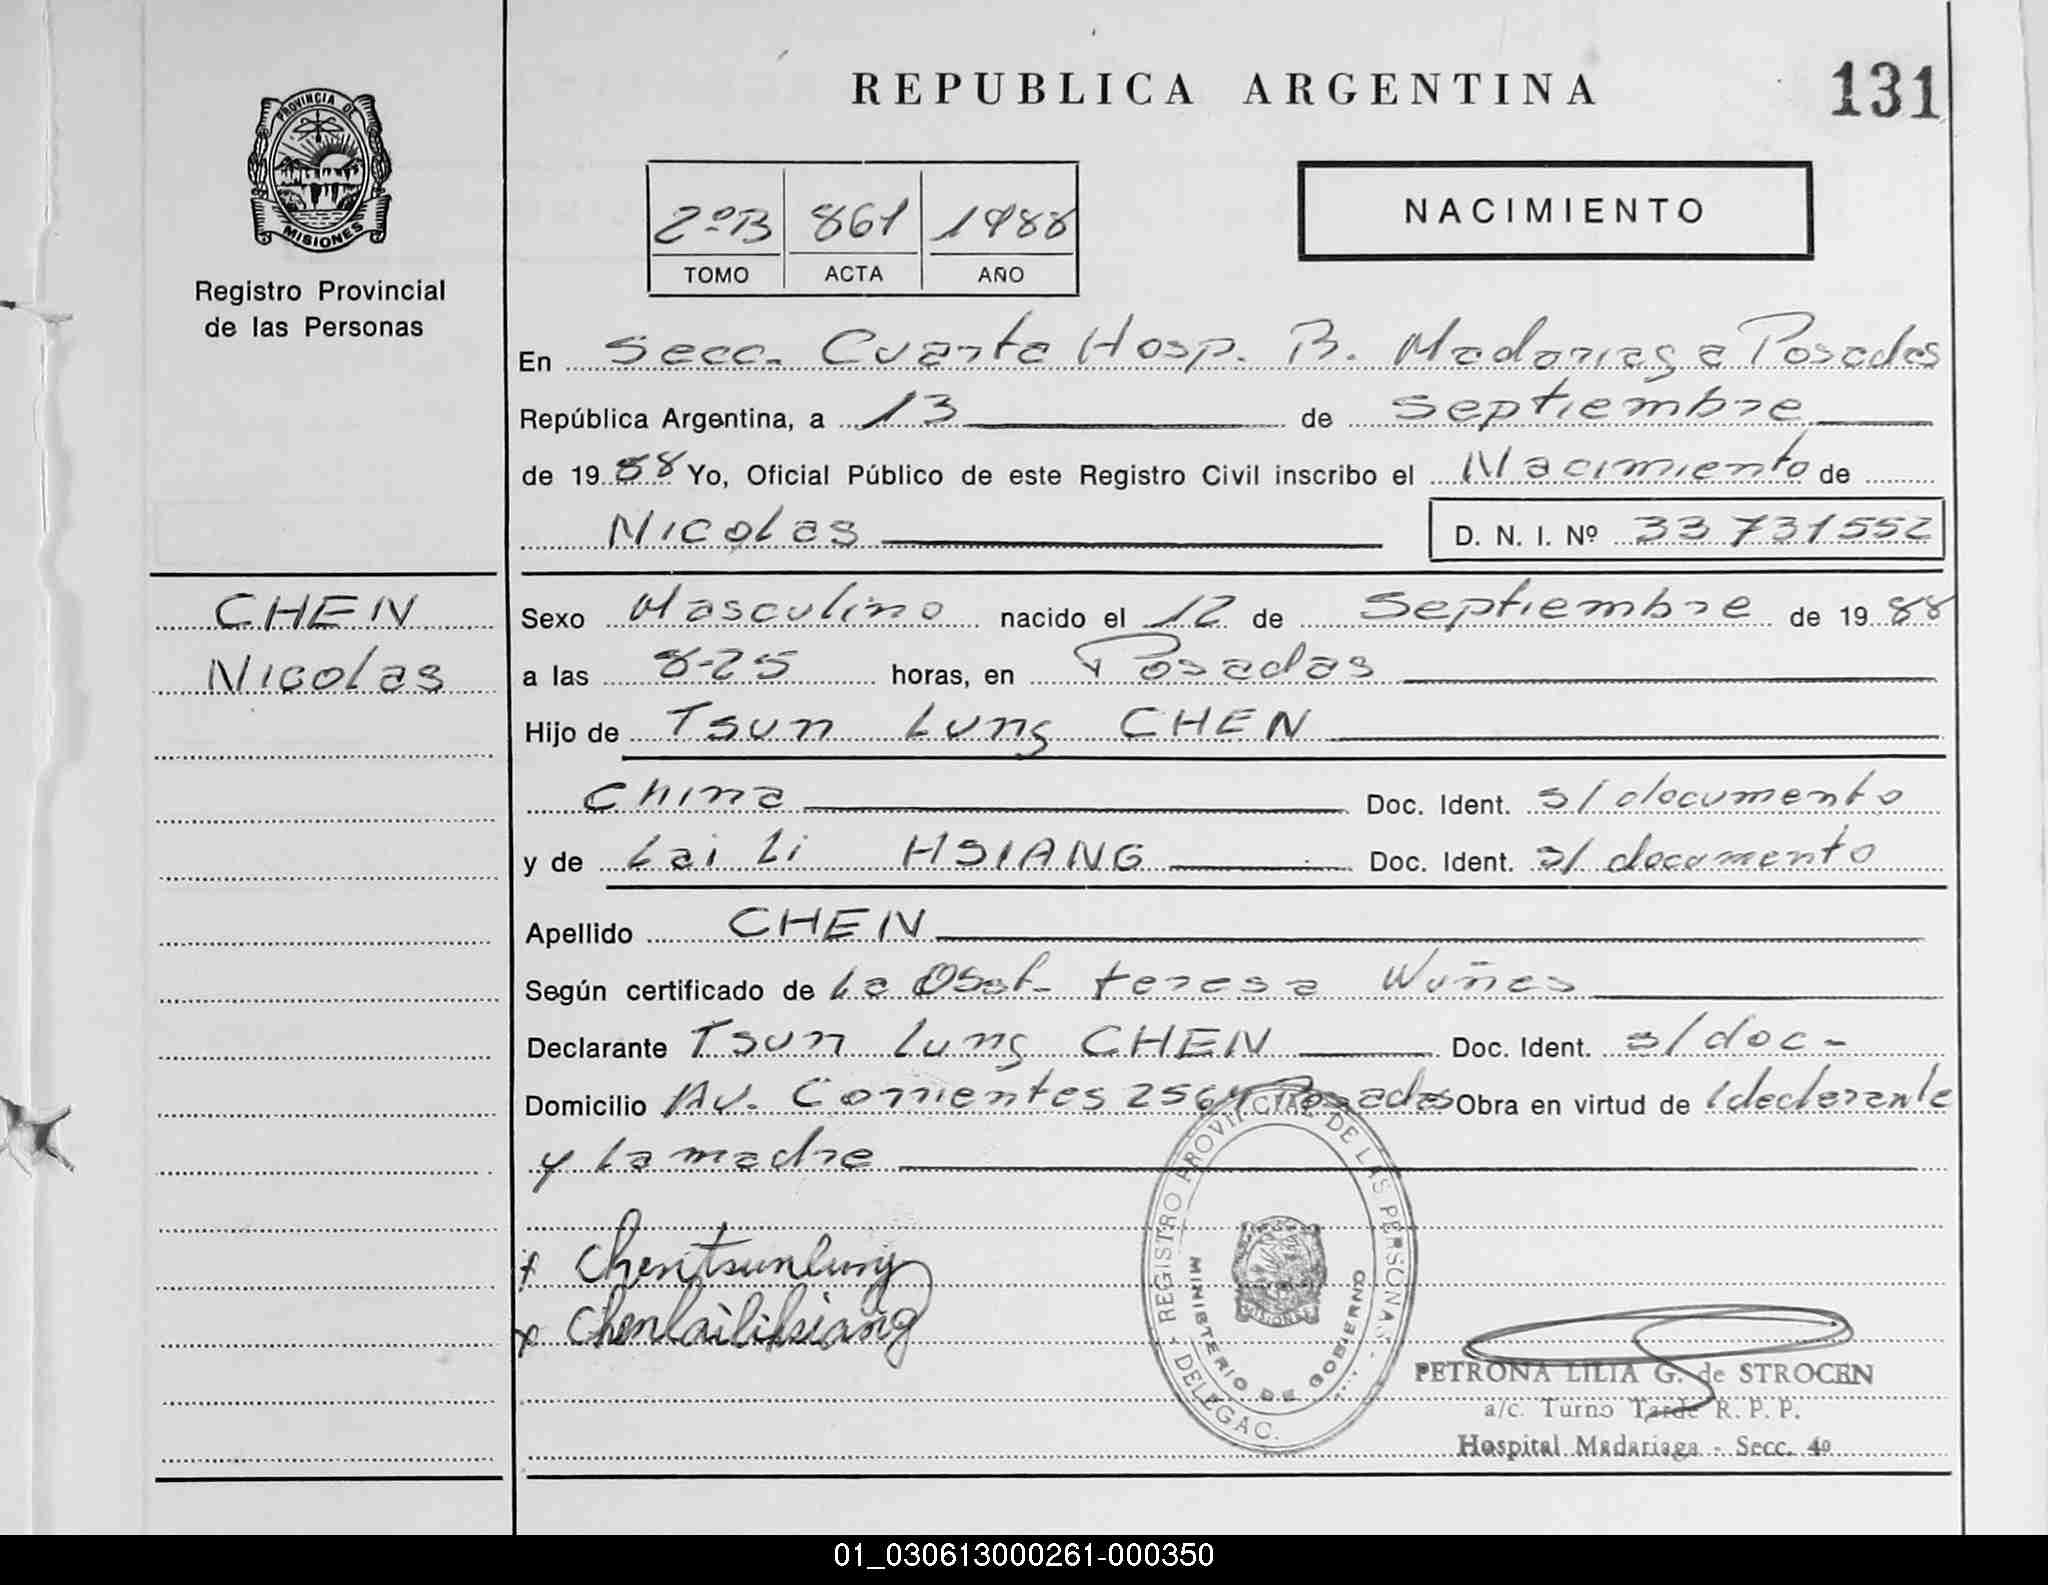 REPUBLICA ARGENTINA
131
PROVINCIA DE
MISIONES
Registro Provincial
de las Personas
2ºB 861 1988
TOMO ACTA AÑO
NACIMIENTO
En Secc. Cuarta Hosp. R. Madariaga Posadas
República Argentina, a 13 de Septiembre
de 1988 Yo, Oficial Público de este Registro Civil inscribo el Nacimiento de
Nicolas D. N. I. Nº 33 731552
CHEN
Nicolas
Sexo Masculino nacido el 12 de Septiembre de 1988
a las 8-25 horas, en Posadas
Hijo de Tsun Lung CHEN
China Doc. Ident. s/documento
y de Lai Li HSIANG Doc. Ident. s/documento
Apellido CHEN
Según certificado de La Obst. teresa Nuñes
Declarante Tsun Lung CHEN Doc. Ident. s/doc-
Domicilio Av. Corrientes 2564 Posadas Obra en virtud de declarante
y La madre
x Chentsunlung
x Chenlailihsiang
REGISTRO PROVINCIAL DE LAS PERSONAS
DELEGAC.
MINISTERIO DE GOBIERNO
MISIONES
PETRONA LILIA G. de STROCEN
a/c. Turno Tarde R. P. P.
Hospital Madariaga - Secc. 4º
01_030613000261-000350